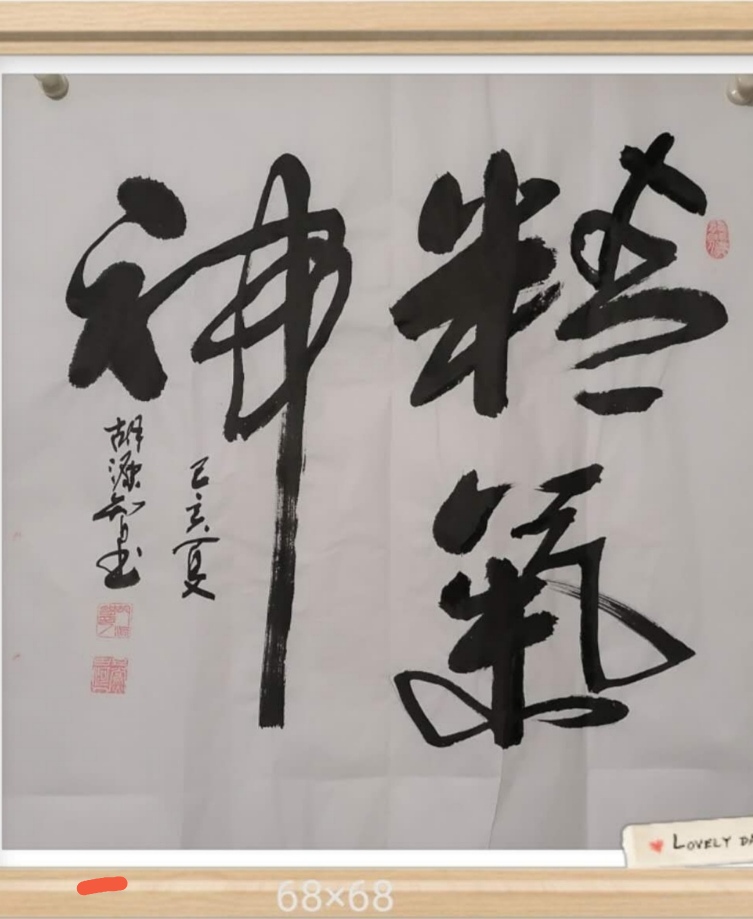 精氣
神
己亥夏
胡源知書
LOVELY DA
68×68